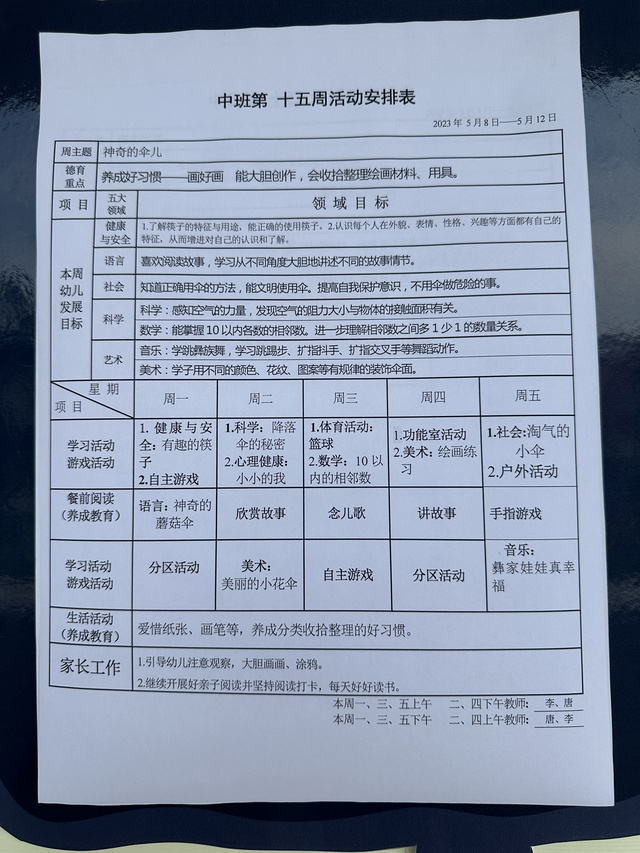 中班第 十五周活动安排表
2023 年 5 月 8 日——5 月 12 日
周主题
神奇的伞儿
德育
重点
养成好习惯——画好画 能大胆创作，会收拾整理绘画材料、用具。
项 目
五大
领域
领 域 目 标
本周
幼儿
发展
目标
健康
与安全
1.了解筷子的特征与用途，能正确的使用筷子。2.认识每个人在外貌、表情、性格、兴趣等方面都有自己的
特征，从而增进对自己的认识和了解。
语言
喜欢阅读故事，学习从不同角度大胆地讲述不同的故事情节。
社会
知道正确用伞的方法，能文明使用伞。提高自我保护意识，不用伞做危险的事。
科学
科学：感知空气的力量，发现空气的阻力大小与物体的接触面积有关。
数学：能掌握 10 以内各数的相邻数。进一步理解相邻数之间多 1 少 1 的数量关系。
艺术
音乐：学跳彝族舞，学习跳踢步、扩指抖手、扩指交叉手等舞蹈动作。
美术：学子用不同的颜色、花纹、图案等有规律的装饰伞面。
星 期
项 目
周一
周二
周三
周四
周五
学习活动
游戏活动
1. 健康与安
全：有趣的筷
子
2.自主游戏
1.科学：降落
伞的秘密
2.心理健康：
小小的我
1.体育活动：
篮球
2.数学：10 以
内的相邻数
1.功能室活动
2.美术：绘画练
习
1.社会:淘气的
小伞
2.户外活动
餐前阅读
（养成教育）
语言：神奇的
蘑菇伞
欣赏故事
念儿歌
讲故事
手指游戏
学习活动
游戏活动
分区活动
美术：
美丽的小花伞
自主游戏
分区活动
音乐：
彝家娃娃真幸
福
生活活动
（养成教育）
爱惜纸张、画笔等，养成分类收拾整理的好习惯。
家长工作
1.引导幼儿注意观察，大胆画画、涂鸦。
2.继续开展好亲子阅读并坚持阅读打卡，每天好好读书。
本周一、三、五上午 二、四下午教师： 李、唐
本周一、三、五下午 二、四上午教师： 唐、李